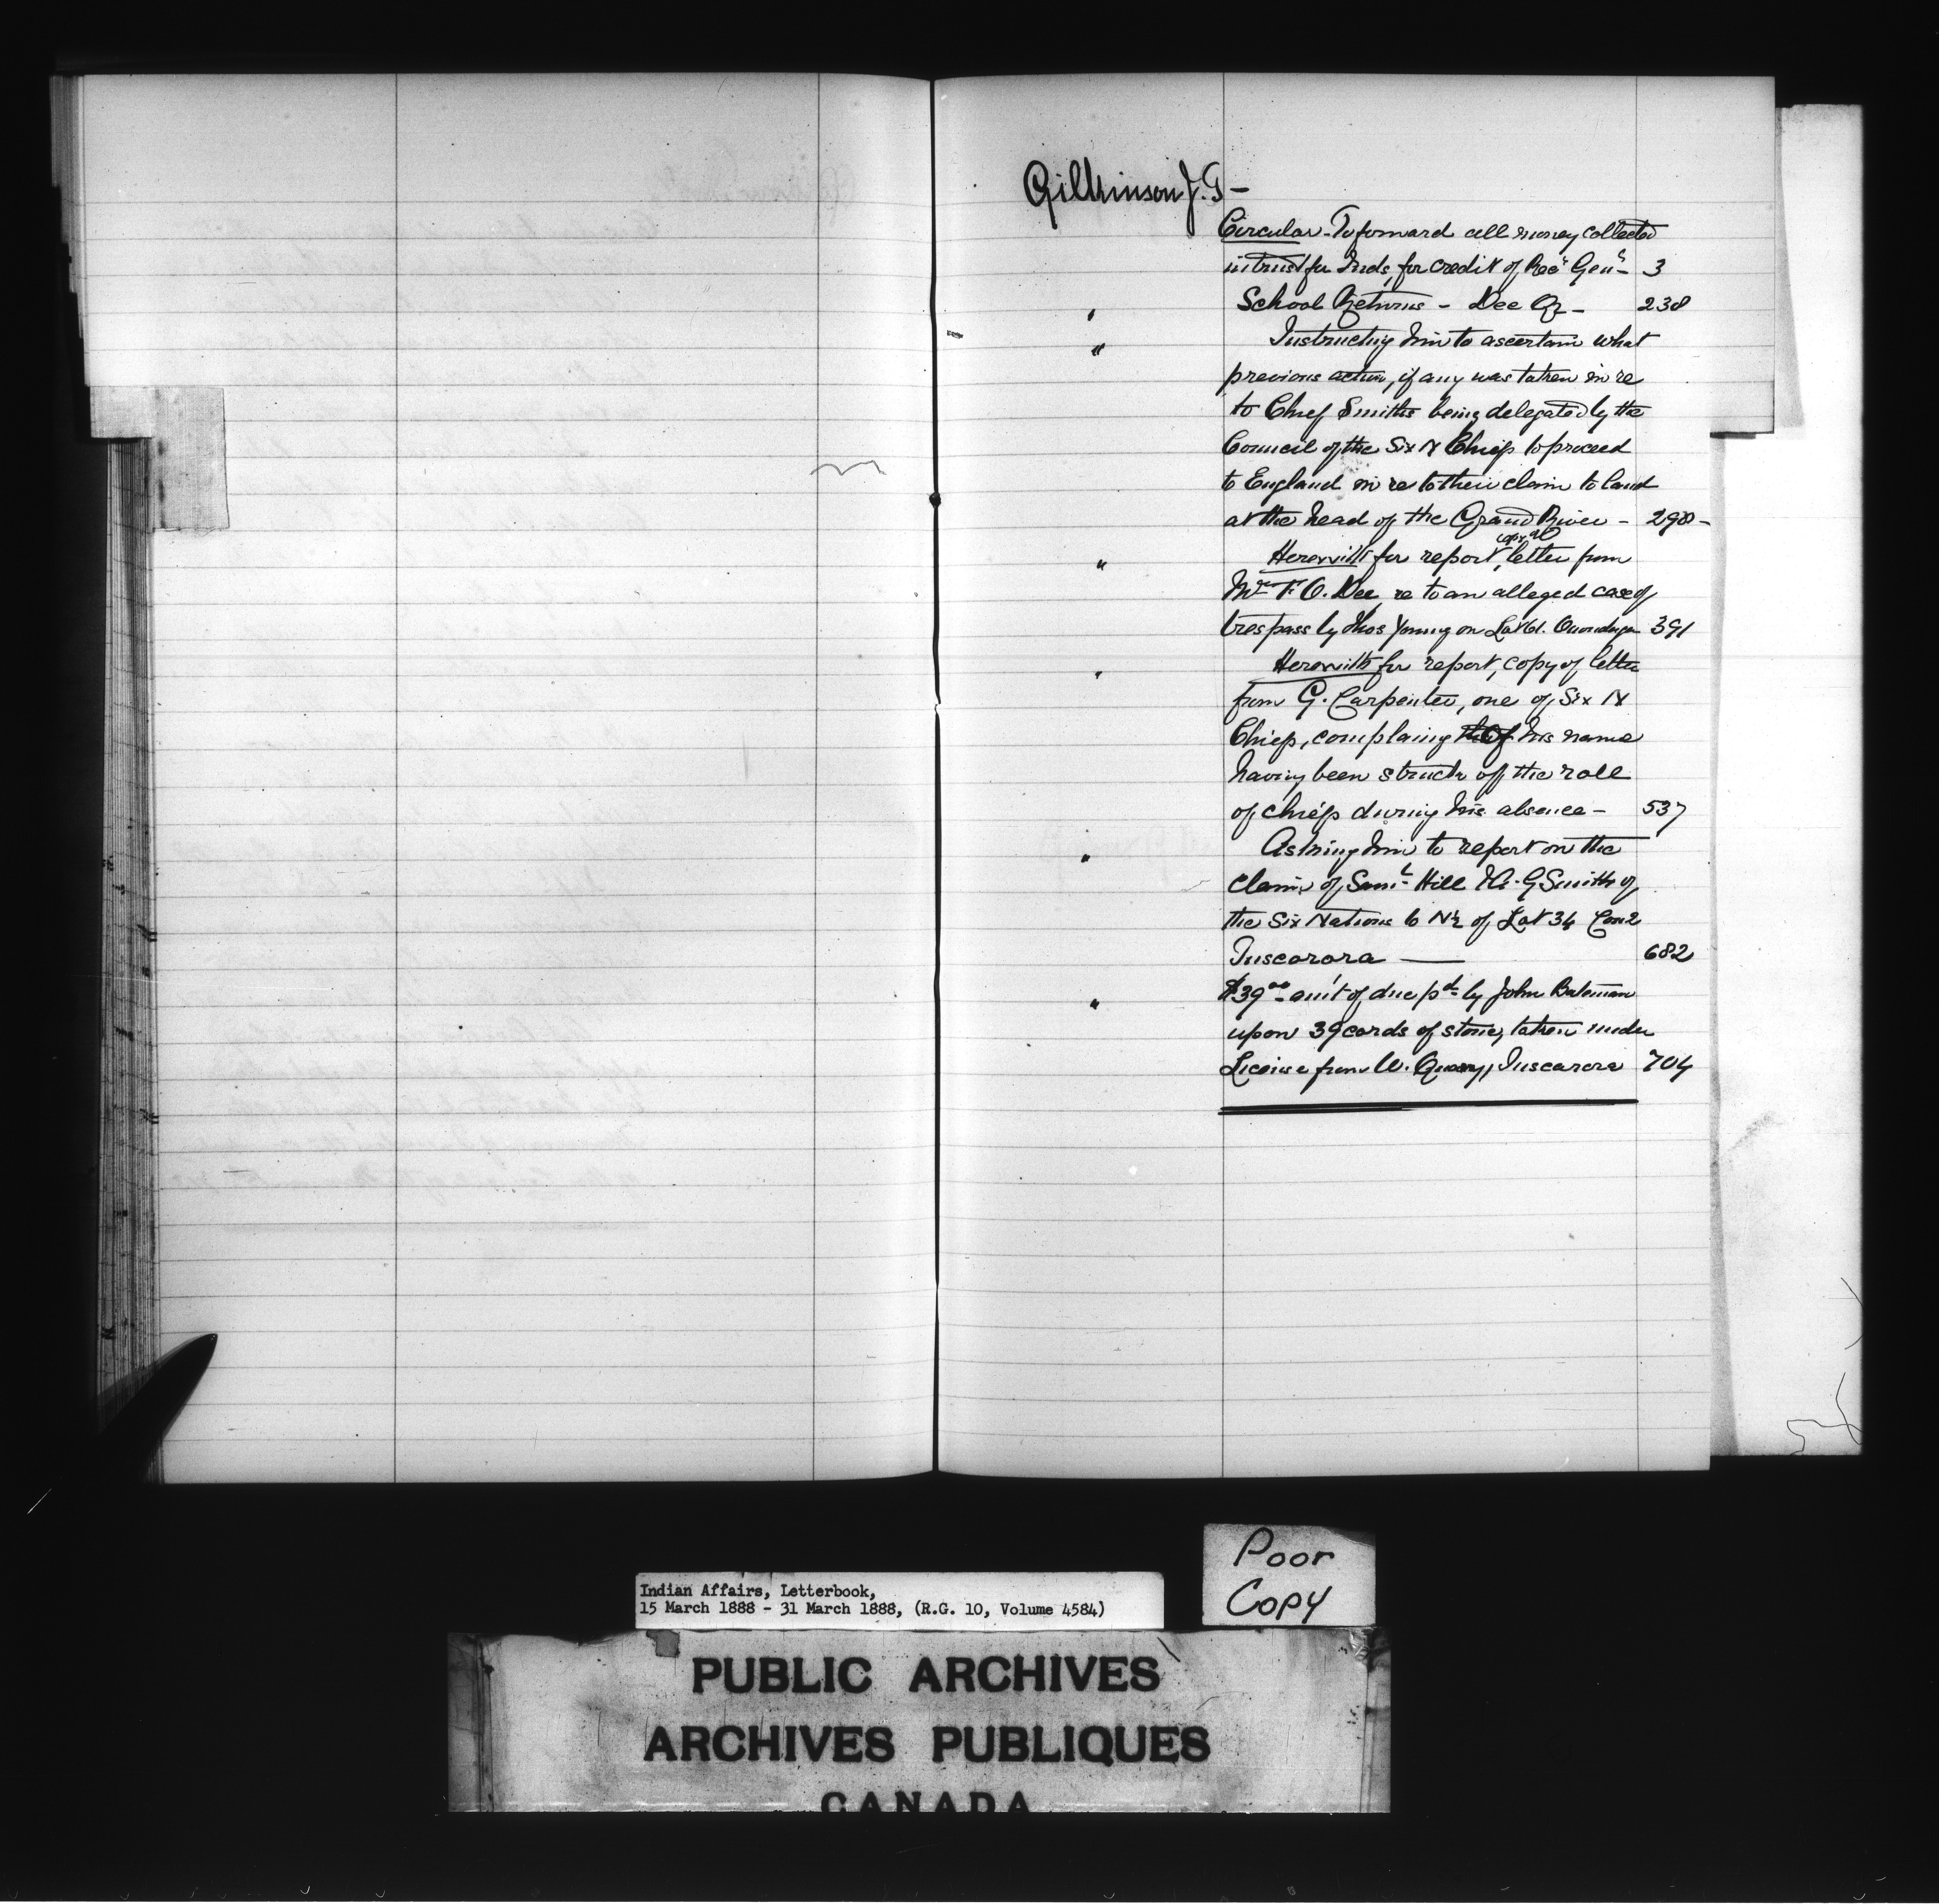 Gilkinson J. T –
Circular - To forward all money collected
in trust for Inds, for credit of Recr Genl – 3
" School Returns – Dec Qr – 238
" Instructing him to ascertain what
previous action, if any was taken in re
to Chief Smiths being delegated by the
Council of the Six N Chiefs to proceed
to England in re to their claim to land
at the head of the Grand River – 298 –
copy of
" Herewith for report, letter from
F. O. Dee re to an alleged case of
trespass by Thos Young on Lot 61. Onondaga 391
" Herewith for report, copy of letter
from G. Carpenter, one of Six N
Chiefs, complaing of his name
having been struck off the roll
of chiefs during his absence – 537
" Asking him to report on the
claims of Saml Hill & A. G Smith of
the Six Nations to N½ of Lot 34 Con 2
Tuscarora — 682
" $39.00 – am't of due pd by John Bateman
upon 39 cords of stone, taken under
License from W. Quarry, Tuscarora 704
Poor
Copy
Indian Affairs, Letterbook,
15 March 1888 - 31 March 1888, (R.G. 10, Volume 4584)
PUBLIC ARCHIVES
ARCHIVES PUBLIQUES
CANADA